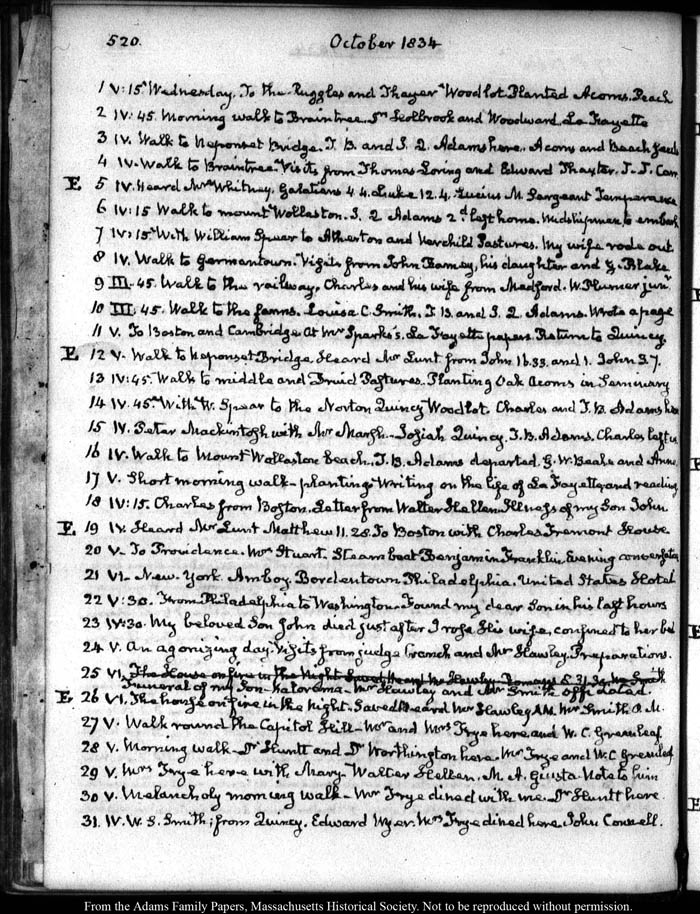 520.
October 1834
1 V:15. Wednesday. To the Ruggles and Thayer Woodlot Planted Acorns. Peach
2 IV:45. Morning walk to Braintree. Holbrook and Woodward. La Fayette
3 IV. Walk to Neponset Bridge. T. B. and I. Q. Adams here. Acorn and Beach
4 IV. Walk to Braintree. Visits from Thomas Loring and Edward Thaxter. J. J. Carr
E 5 IV. Heard Mr Whitney. Galatians 4.4. Luke 12.4. Lucius M Sargeant Temperance
6 IV:15 Walk to mount Wollaston. I. Q Adams 2d left home. Midshipman to embark
7 IV:15 With William Spear to Atherton and Pastures. My wife rode out
8 IV. Walk to Germantown. Visits from John Bamey, his daughter and G. Blake
9 III.45. Walk to the railway. Charles and his wife from Medford. W. Plumer junr
10 III.45. Walk to the farms. Louisa C. Smith. T B. and I. Q. Adams. Wrote a page
11 V. To Boston and Cambridge. At Mr Sparks's. La Fayette papers. Return to Quincy.
E 12 V. Walk to Neponset Bridge. Heard Mr Lunt from John 16.33. and 1. John 3.7.
13 IV:45. Walk to middle and Druid Pastures. Planting Oak Acorns in Seminary
14 IV.45. With W. Spear to the Norton Quincy Woodlot. Charles and T. B. Adams here
15 IV. Peter Mackintosh with Mr Marsh. Josiah Quincy. T. B. Adams. Charles left us
16 IV. Walk to Mount Wollaston beach. T. B. Adams departed. G. W. Beale and Ann
17 V. Short morning walk - planting. Writing on the life of La Fayette, and reading
18 IV:15. Charles from Boston. Letter from Walter Hellen. Illness of my Son John
E 19 IV. Heard Mr Lunt Matthew 11.28. To Boston with Charles Tremont House
20 V. To Providence. Mrs Stuart. Steam boat Benjamin Franklin. Evening conversation
21 VI. New-York. Amboy. Bordentown. Philadelphia. United States Hotel
22 V:30. From Philadelphia to Washington. Found my dear Son in his last hours
23 IV:30. My beloved Son John died just after I rose. His wife, confined to her bed
24 V. An agonizing day. Visits from judge Cranch and Mr Hawley. Preparation.
25 VI. The House on fire in the Night Saved Heard Mr Hawley Romans 8. 31.32. Mr Smith
Funeral of my Son. Kalorama - Mr Hawley and Mr Smith officiated.
E 26 VI. The house on fire in the Night. Saved. Heard Mr Hawley A.M. Mr Smith P.M.
27 V. Walk round the Capitol Hill - Mr and Mrs Frye here and W. C. Greenleaf
28 V. Morning walk - Dr Huntt and Dr Worthington here. Mr Frye and W. C Greenleaf
29 V. Mrs Frye here with Mary. Walter Hellen. M. A. Giusta Note to him
30 V. Melancholy morning walk - Mr Frye dined with me. Dr Huntt here
31. IV. W. S. Smith; from Quincy. Edward Wyer. Mrs Frye dined here. John Connell.
From the Adams Family Papers, Massachusetts Historical Society. Not to be reproduced without permission.